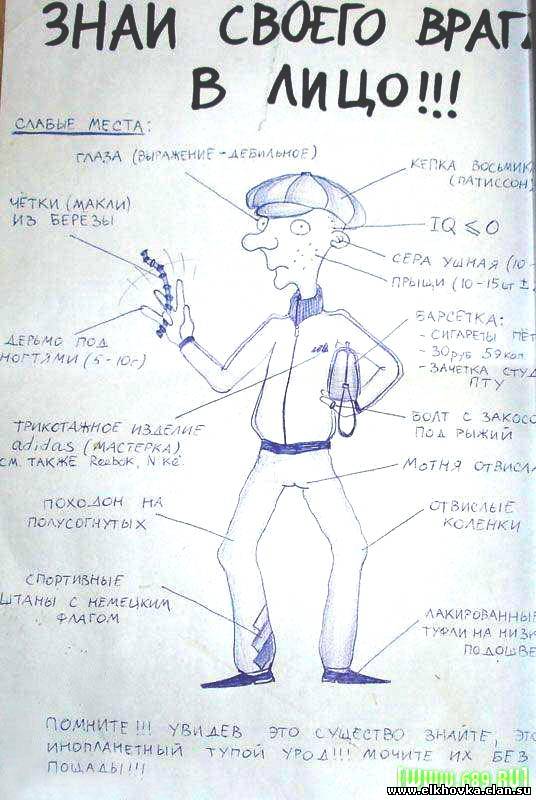 ЗНАЙ СВОЕГО ВРАГА
В ЛИЦО!!!
СЛАБЫЕ МЕСТА:
ГЛАЗА (ВЫРАЖЕНИЕ - ДЕБИЛЬНОЕ)
КЕПКА ВОСЬМИК
(ПАТИССОН)
ЧЁТКИ (МАКЛИ)
ИЗ БЕРЕЗЫ
IQ ⩽ 0
СЕРА УШНАЯ (10-
ПРЫЩИ (10-15шт ±
ДЕРЬМО ПОД
НОГТЯМИ (5-10г)
БАРСЕТКА:
- СИГАРЕТЫ ПЁТ
- 30руб 59коп
- ЗАЧЕТКА СТУД
ПТУ
БОЛТ С ЗАКОСО
ПОД РЫЖИЙ
ТРИКОТАЖНОЕ ИЗДЕЛИЕ
adidas (МАСТЕРКА)
СМ. ТАКЖЕ Reebok, Nike.
МОТНЯ ОТВИСЛА
ПОХОДОН НА
ПОЛУСОГНУТЫХ
ОТВИСЛЫЕ
КОЛЕНКИ
СПОРТИВНЫЕ
ШТАНЫ С НЕМЕЦКИМ
ФЛАГОМ
ЛАКИРОВАННЫЕ
ТУФЛИ НА НИЗК
ПОДОШВЕ
ПОМНИТЕ!!! УВИДЕВ ЭТО СУЩЕСТВО ЗНАЙТЕ, ЭТО
ИНОПЛАНЕТНЫЙ ТУПОЙ УРОД!!! МОЧИТЕ ИХ БЕЗ
ПОЩАДЫ!!!
WWW.689.RU
www.elkhovka.clan.su